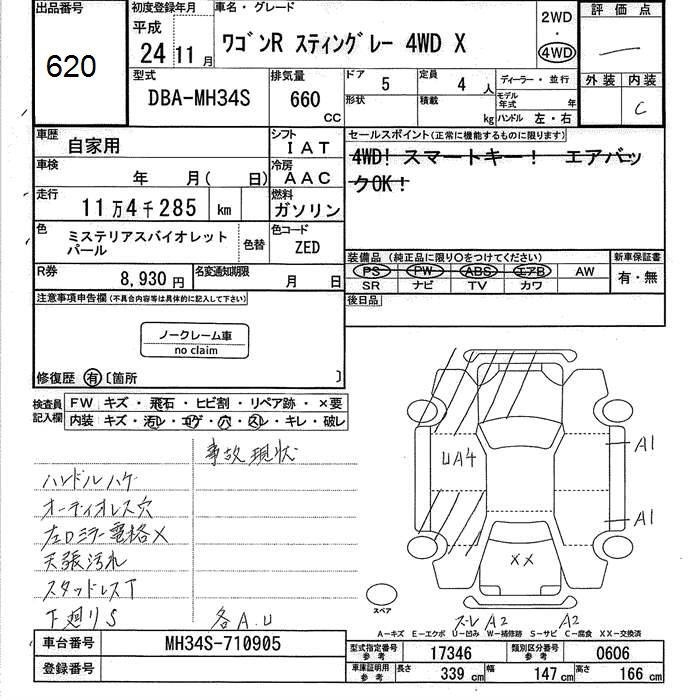 出品番号
620
初度登録年月
平成
24年11月
車名・グレード
ワゴンR スティングレー 4WD X
2WD
・
4WD
評価点
外装 内装
C
型式
DBA-MH34S
排気量
660
CC
ドア
5
定員
4
人
形状
積載
kg
ディーラー・並行
モデル年式
年
ハンドル 左・右
車歴
自家用
シフト
IAT
セールスポイント(正常に機能するものに限ります)
4WD! スマートキー! エアバッ
クOK!
車検
年 月( 日)
冷房
AAC
走行
11万4千285 km
燃料
ガソリン
色
ミステリアスバイオレット
パール
色替
色コード
ZED
装備品(純正品に限り〇をつけてください)
PS PW ABS エアB AW
SR ナビ TV カワ
新車保証書
有・無
R券
8,930円
名変通知期限
月 日
後日品
注意事項申告欄(不具合内容等は具体的に記入して下さい)
ノークレーム車
no claim
修復歴 有 〔箇所 〕
検査員記入欄
FW キズ・飛石・ヒビ割・リペア跡・×要
内装 キズ・汚レ・コゲ・穴・スレ・キレ・破レ
事故現状
ハンドルハゲ
オーディオレス穴
左Dミラー電格X
天張汚れ
スタッドレスT
下廻りS
各A.U
UA4
A1
A1
XX
スペア
スレ A2
A2
A-キズ E-エクボ U-凹み W-補修跡 S-サビ C-腐食 XX-交換済
車台番号
MH34S-710905
登録番号
型式指定番号
参考
17346
類別区分番号
参考
0606
車庫証明用
参考
長さ
339 cm
幅
147 cm
高さ
166 cm